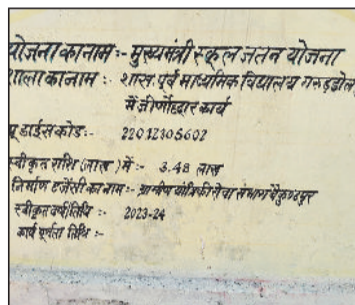 योजना का नाम :- मुख्यमंत्री स्कूल जतन योजना
शाला का नाम :- शास. पूर्व माध्यमिक विद्यालय गरुड़डोल
में जीर्णोद्धार कार्य
यू डाईस कोड :- 22012305602
स्वीकृत राशि (लाख) में :- 3.48 लाख
निर्माण एजेंसी का नाम :- ग्रामीण यांत्रिकी सेवा संभाग बैकुण्ठपुर
स्वीकृत वर्ष/तिथि :- 2023-24
कार्य पूर्णता तिथि :-